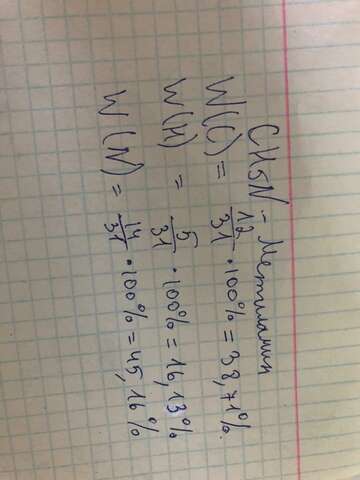 CH5N - Метиламин
W(C) = 12/31 · 100% = 38,71%.
W(H) = 5/31 · 100% = 16,13%
W(N) = 14/31 · 100% = 45,16%